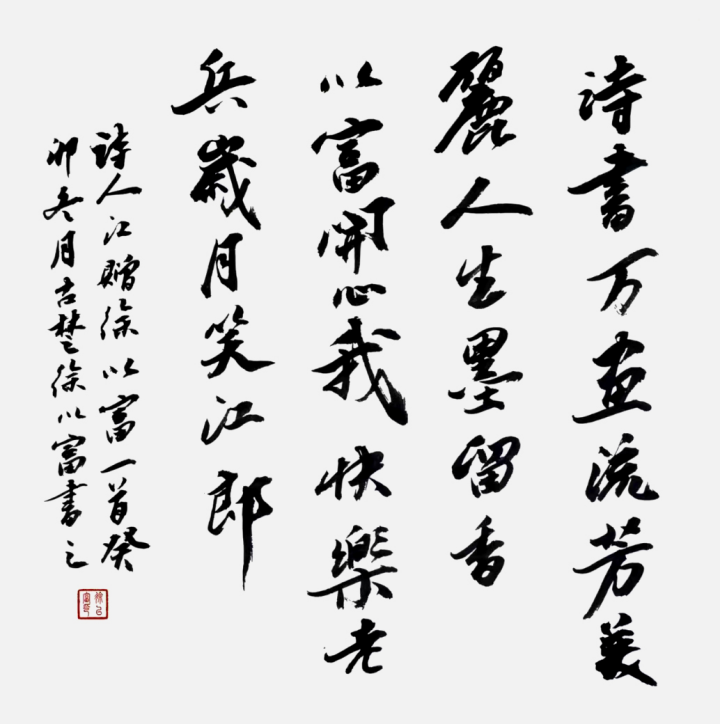 詩書万画流芳美
麗人生墨留香
以富開心我快樂老
兵歲月笑江郎
詩人江贈徐以富一首癸
卯冬月古楚徐以富書之